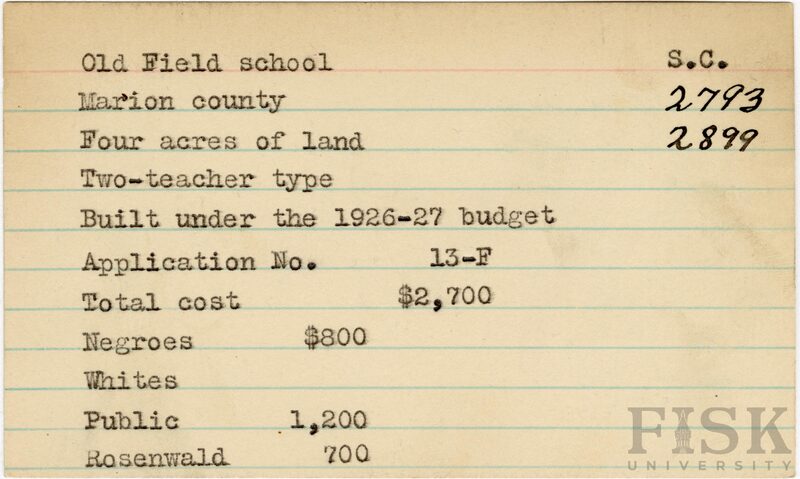 Old Field school S.C.
Marion county 2793
Four acres of land 2899
Two-teacher type
Built under the 1926-27 budget
Application No. 13-F
Total cost $2,700
Negroes $800
Whites
Public 1,200
Rosenwald 700
FISK
UNIVERSITY